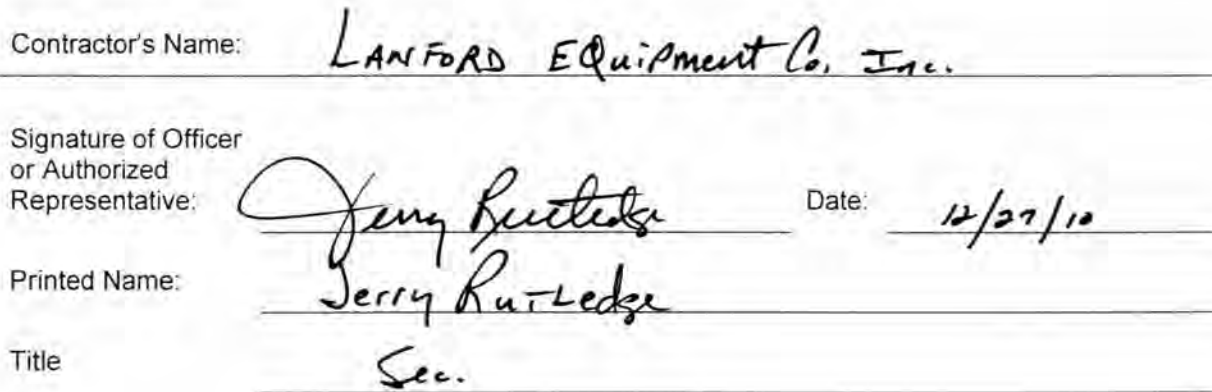 Contractor's Name: LANFORD EQuiPment Co. Inc.
Signature of Officer
or Authorized
Representative: Jerry Rutledge Date: 12/27/10
Printed Name: Jerry RuTLedge
Title Sec.